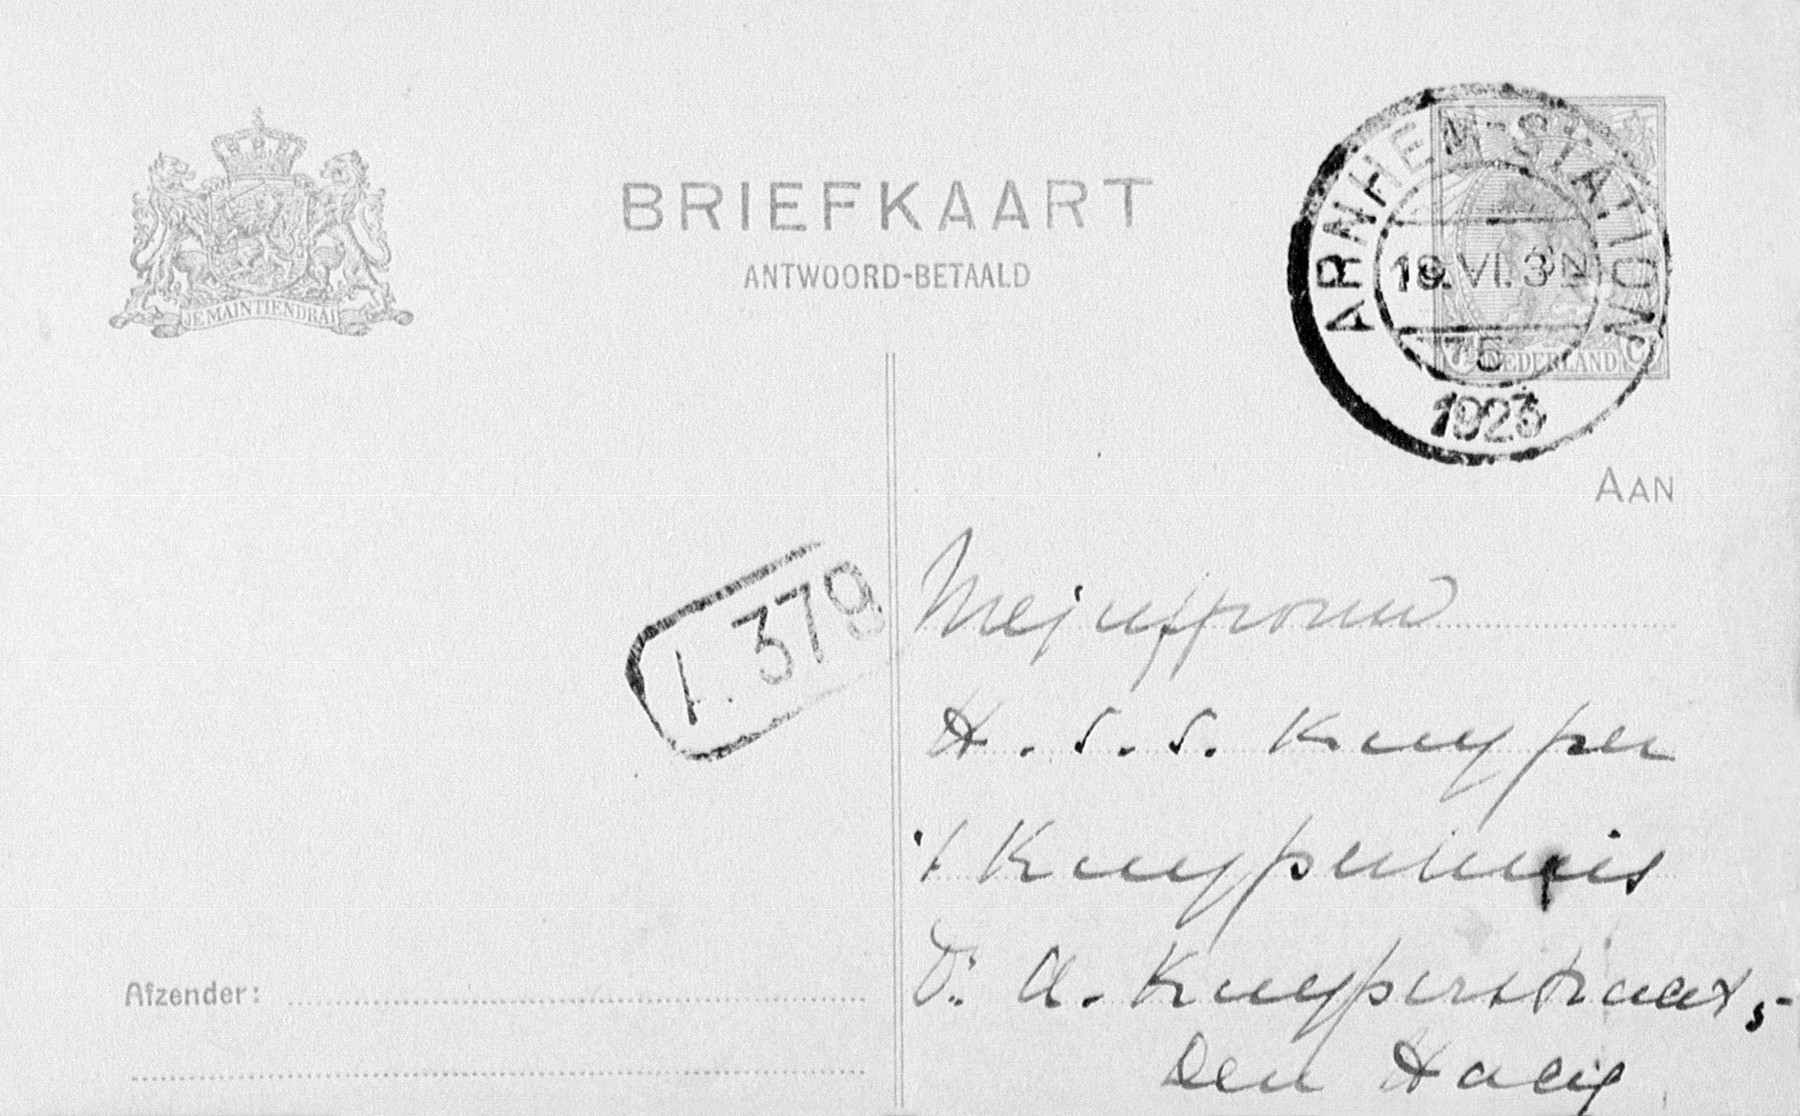 BRIEFKAART
ANTWOORD-BETAALD
JE MAINTIENDRAI
ARNHEM-STATION
18.VI.3-N
75
1923
NEDERLAND
AAN
A.379
Mejuffrouw
H.S.S. Kuyper
't Kuyperhuis
Dr. A. Kuyperstraat 5-
Den Haag
Afzender: